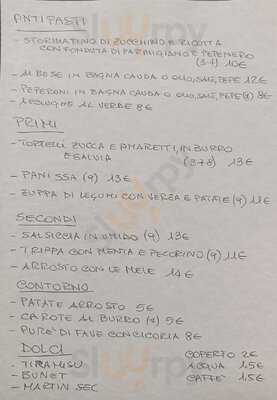 ANTIPASTI
- SFORMATINO DI ZUCCHINO E RICOTTA
CON FONDUTA DI PARMIGIANO E PEPENERO
(3-7) 10€
IN BAGNA CAUDA O OLIO, SALE, PEPE 12€
- PEPERONI IN BAGNA CAUDA O OLIO, SALE, PEPE 8€
- ACCIUGHE AL VERDE 8€
PRIMI
- TORTELLI ZUCCA E AMARETTI, IN BURRO
E SALVIA (3-7-8) 13€
- PANISSA (9) 13€
- ZUPPA DI LEGUMI CON VERZA E PATATE (9) 11€
SECONDI
- SALSICCIA IN UMIDO (9) 13€
- TRIPPA CON MENTA E PECORINO (9) 11€
- ARROSTO CON LE MELE 14€
CONTORNO
- PATATE ARROSTO 5€
- CAROTE AL BURRO (7) 5€
- PURE' DI FAVE CON CICORIA 8€
DOLCI COPERTO 2€
- TIRAMISU ACQUA 1.5€
- BUNET CAFFE' 1.5€
- MARTIN SEC